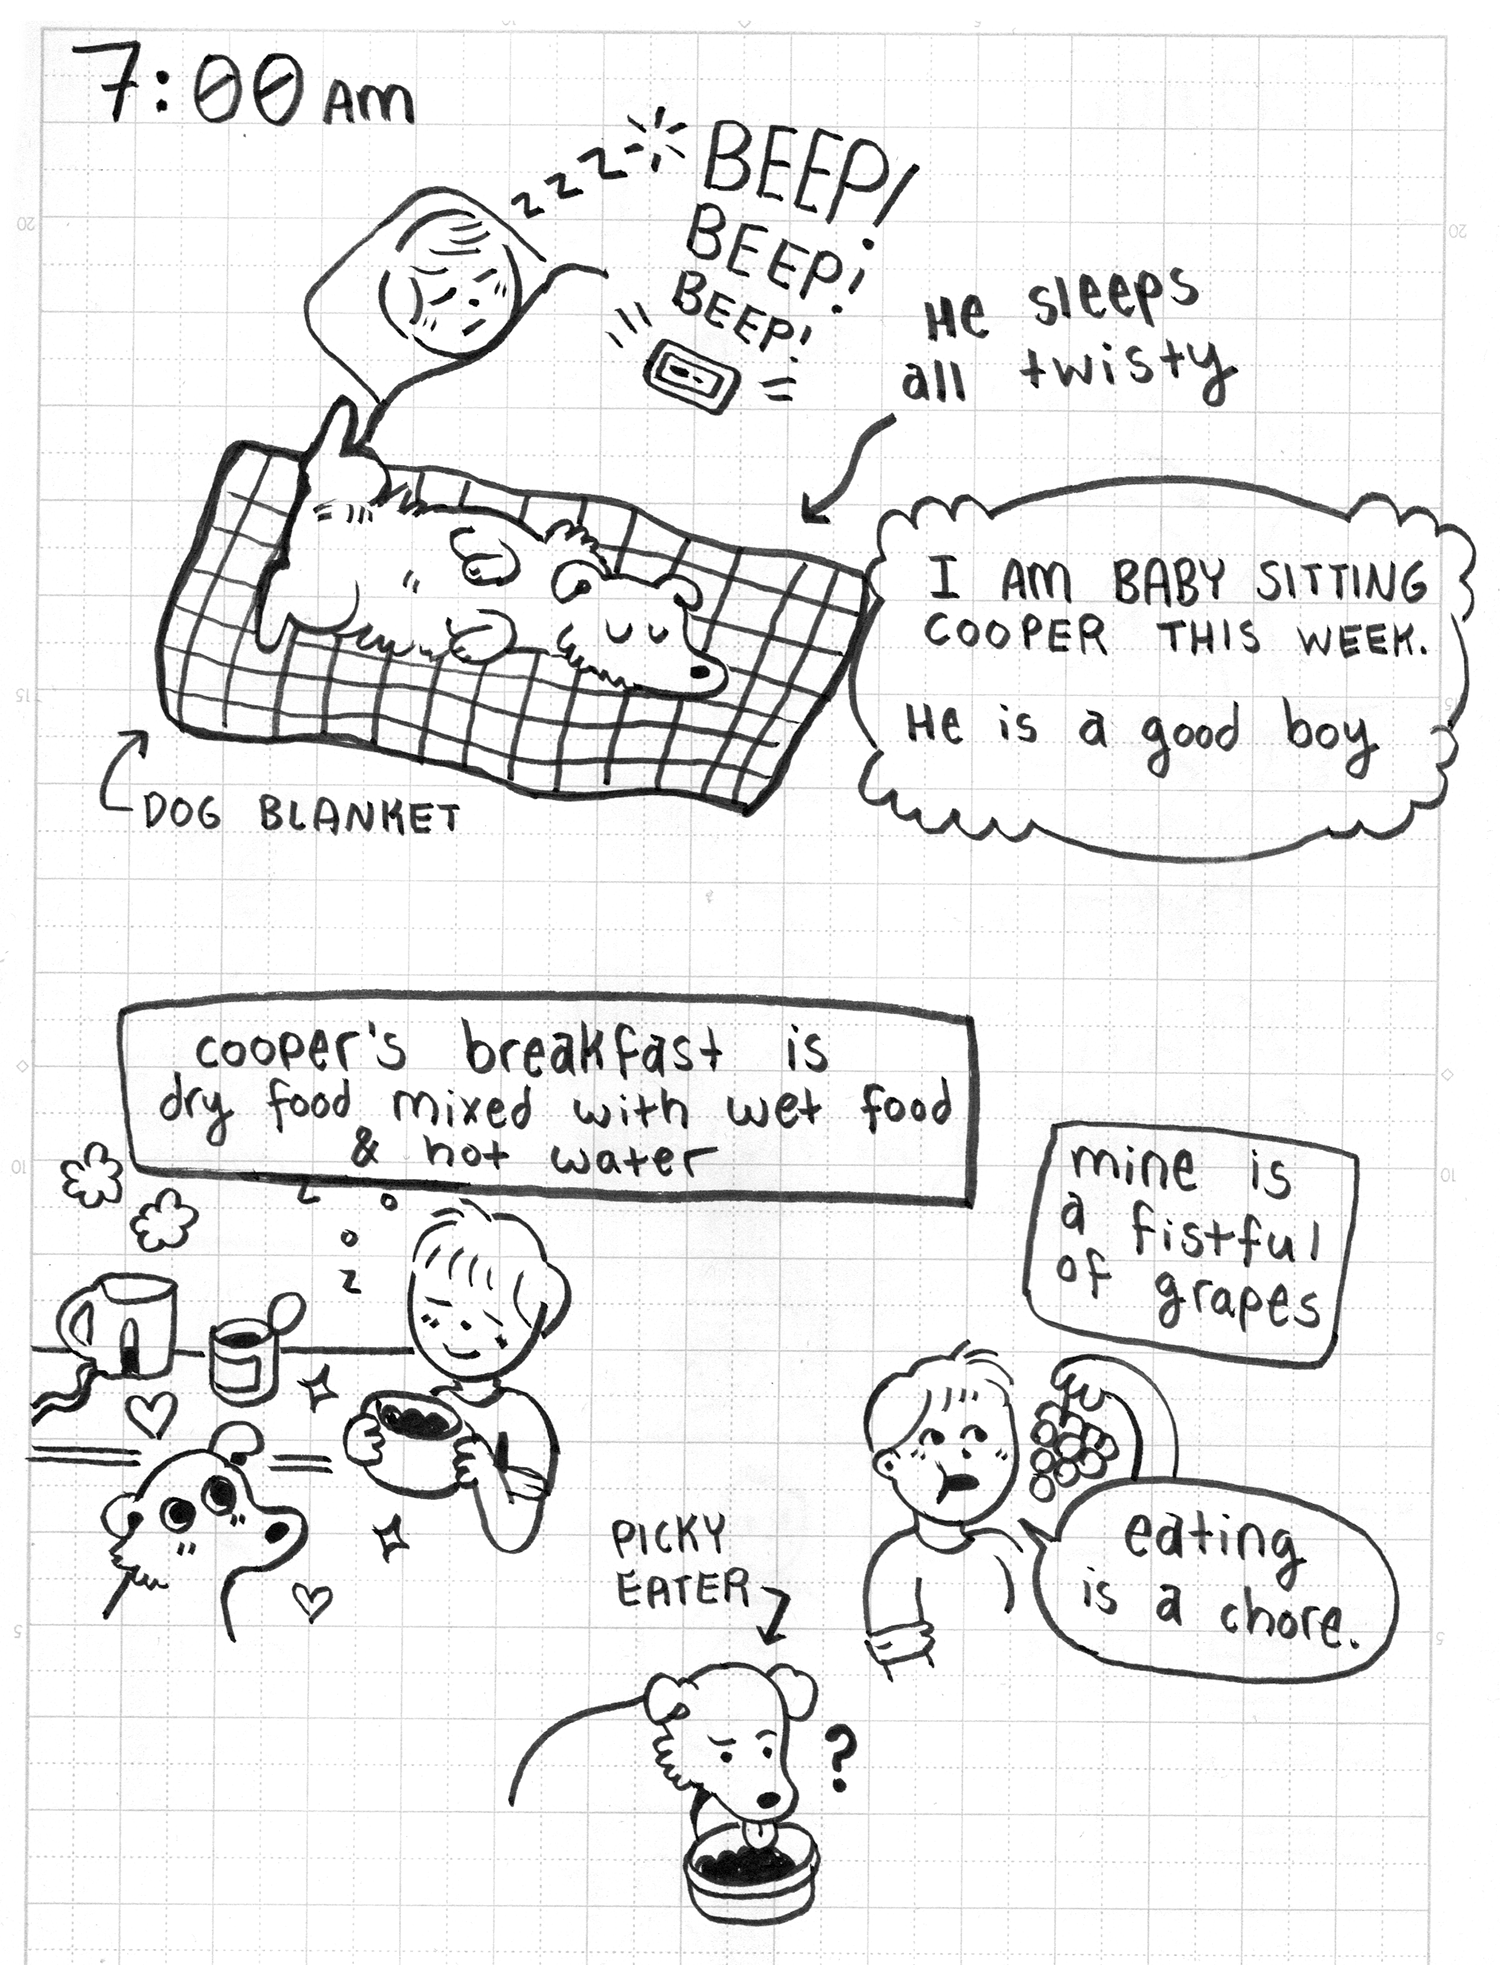 7:00 AM
z z z
BEEP!
BEEP!
BEEP!
He sleeps
all twisty
I AM BABY SITTING
COOPER THIS WEEK.
He is a good boy
DOG BLANKET
cooper's breakfast is
dry food mixed with wet food
& hot water
mine is
a fistful
of grapes
eating
is a chore.
PICKY
EATER
?
20
20
15
15
10
10
5
5